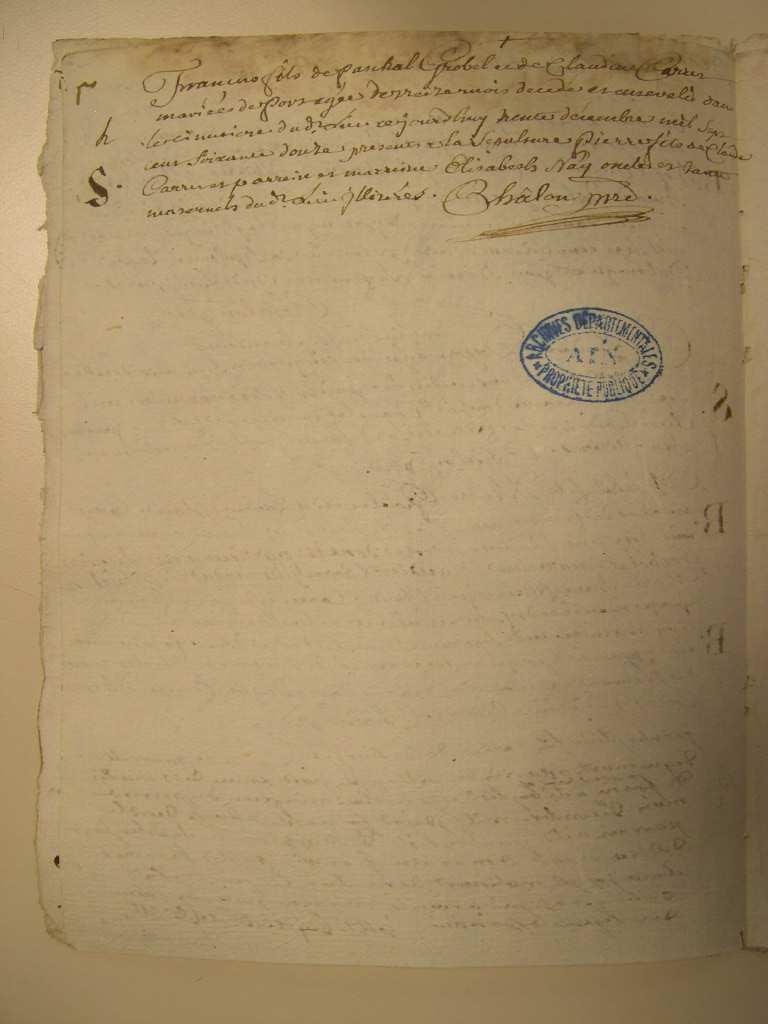 François fils de Paschal Grobel et de Claudine Carret
mariés de Portagée de treize mois decede et enseveli dans
le cimetiere du dt. lieu ce jourdhuy trente décembre mil sept
cent soixante douze presents a la sepulture Pierre fils de Claude
Carret parrein et marreine Elisabeth Nay oncle et tante
maternels du dt. lieu illitérés. Châlon
h
S.
ARCHIVES DÉPARTEMENTALES
AIX
PROPRIÉTÉ PUBLIQUE